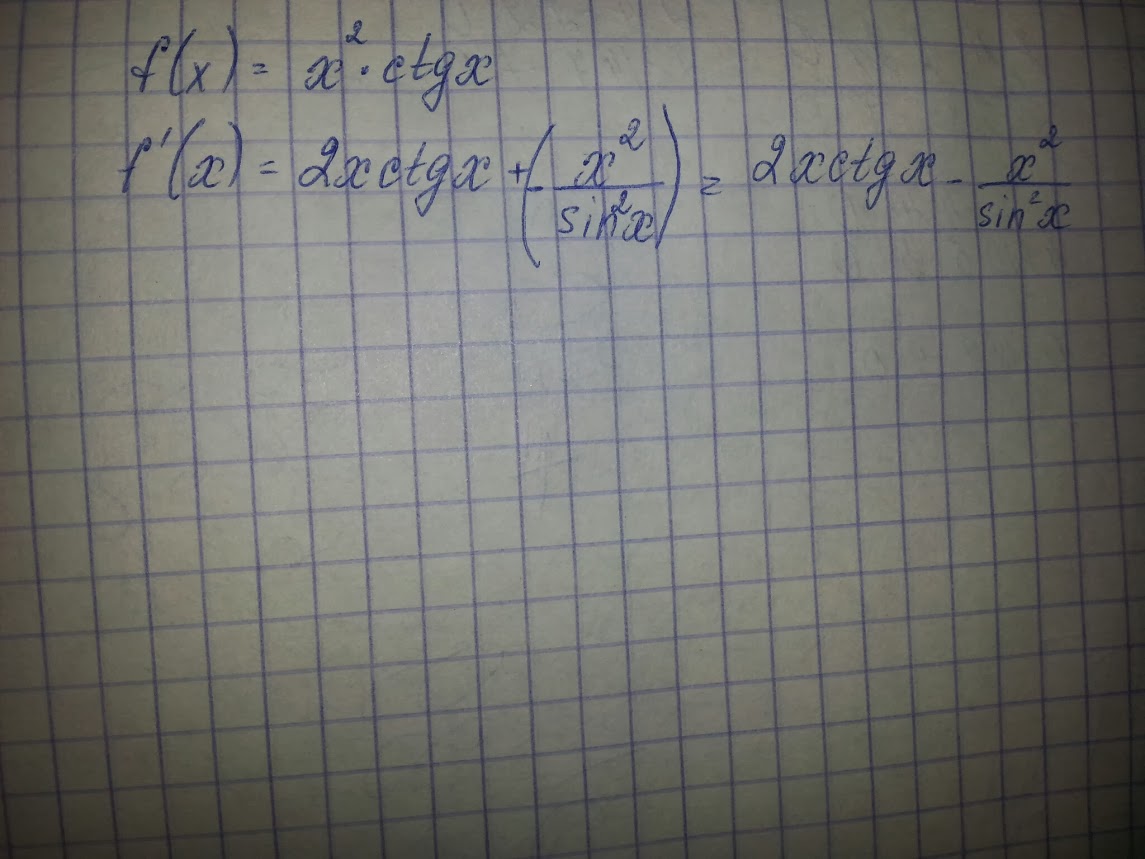 f(x) = x² · ctgx
f'(x) = 2xctgx + (- x²/sin²x) = 2xctgx - x²/sin²x